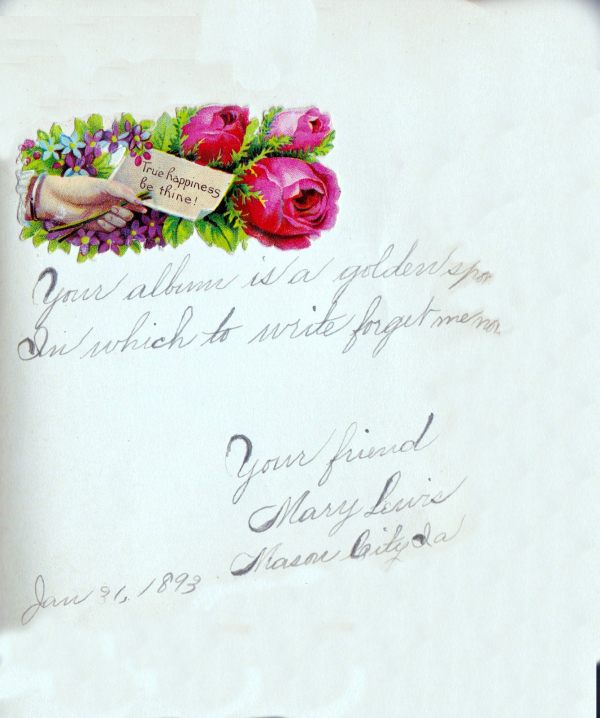 True happiness
be thine!
Your album is a golden spot
In which to write forget me not
Your friend
Mary Lewis
Mason City Ia
Jan 31, 1893